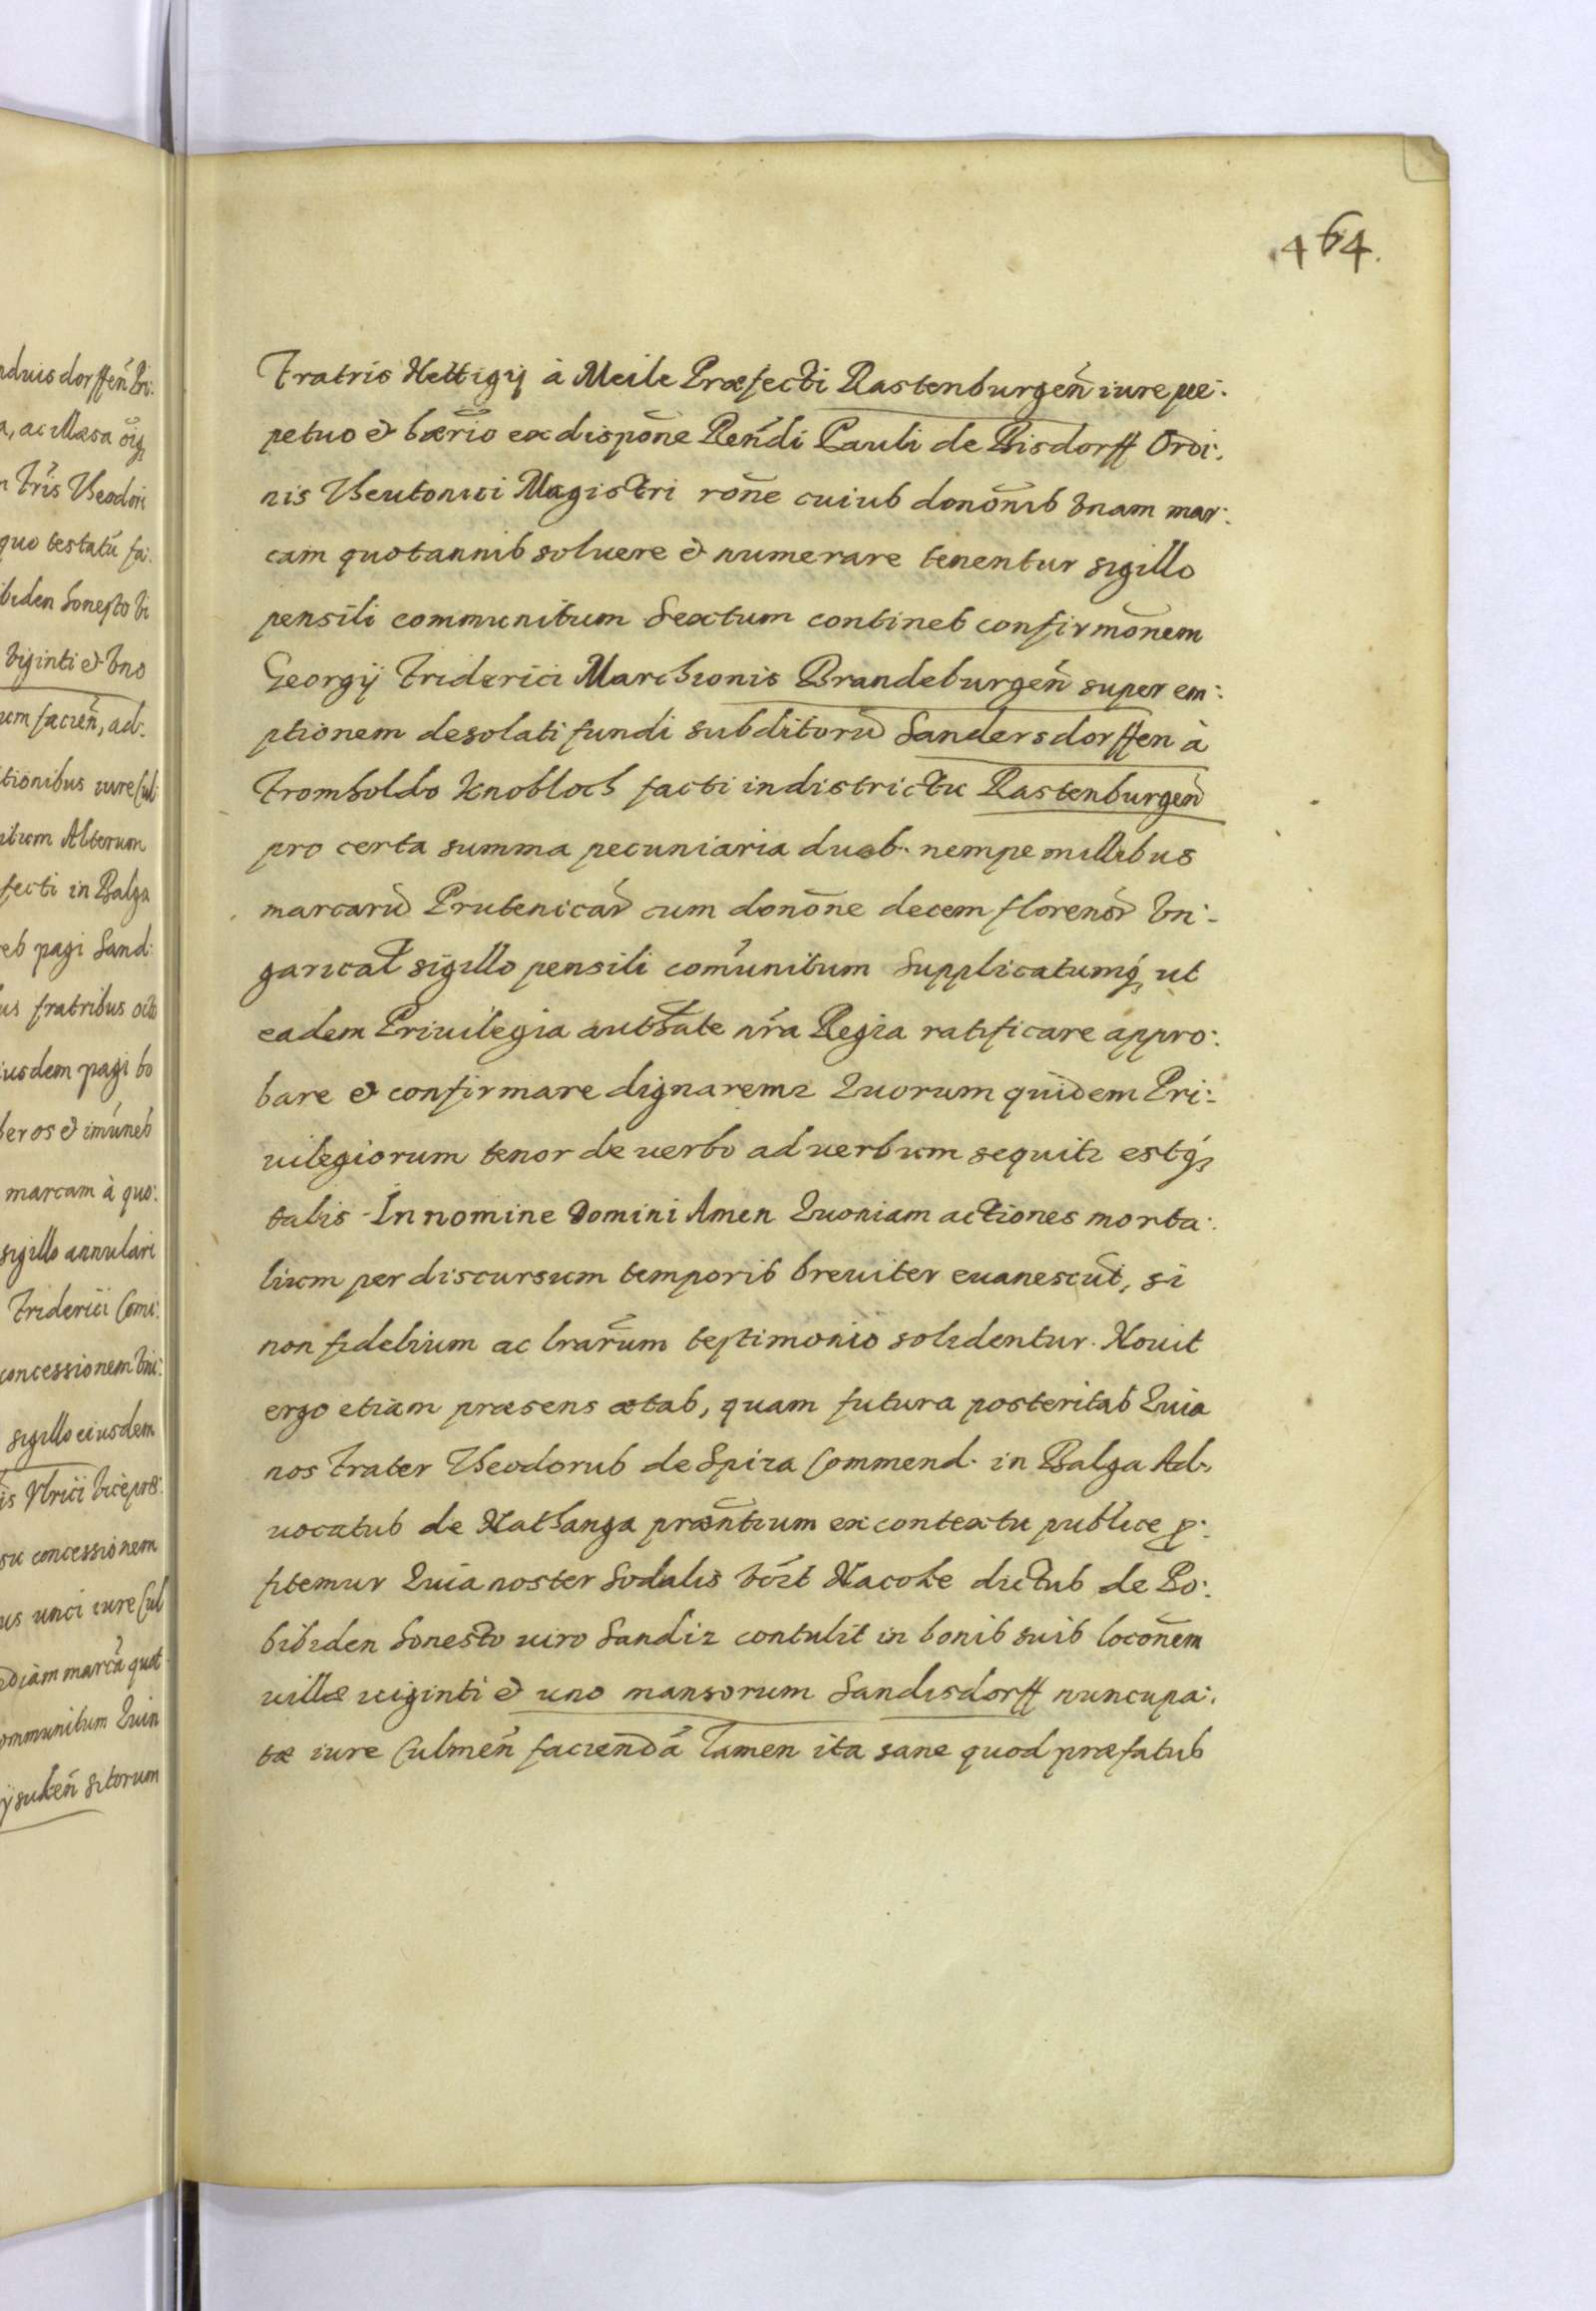 464.
nduisdorffen̄ Pri:
a, ac illæsa oīq
n Fr̄is Theodori
quo testatū fa:
ibiden honesto vi
viginti & vno
um facien̄, ad:
tionibus iure Cul:
itum Alterum
fecti in Balga
reb pagi Sand:
us fratribus octo
iusdem pagi bo
beros & im̄unes
marcam à quo:
sigillo annulari
Friderici Comi:
concessionem vni:
sigillo eiusdem
is Vlrici vicepræ:
su concessionem
us unci iure Cul
ediam marcā quot
ommunitum Quin
ysuken̄ sitorum
Fratris Hettigij à Meile Præfecti Rastenburgen̄ iure per:
petuo & hær̄io ex dispōne Ren̄di Pauli de Risdorff Ordi:
nis Theutonici Magistri rōne cuius donōnis vnam mar:
cam quotannis soluere & numerare tenentur sigillo
pensili communitum Sextum continet confirmōnem
Georgij Friderici Marchionis Brandeburgen̄ super em:
ptionem desolati fundi subditorū Sandersdorffen à
Fromholdo Knobloch facti in districtu Rastenburgen̄
pro certa summa pecuniaria duab. nempe millibus
marcarū Prutenicar̄ cum donōne decem florenor̄ Vn:
garical sigillo pensili com̄unitum Supplicatumq́ ut
eadem Priuilegia auth̄ate nr̄a Regia ratificare appro:
bare & confirmare dignaremr Quorum quidem Pri:
uilegiorum tenor de uerbo ad uerbum sequitr estq́
talis - In nomine Domini Amen Quoniam actiones morta:
lium per discursum temporis breuiter euanescūt, si
non fidelium ac lr̄arum testimonio solidentur. Nouit
ergo etiam præsens ætas, quam futura posteritas Quia
nos Frater Theodorus de Spira Commend. in Balga Ad:
uocatus de Nathanga præn̄tium ex contextu publice p:
fitemur Quia noster Sodalis dict̄ Nacoke dictus de Po:
bibiden honesto uiro Sandir contulit in bonis suis locōnem
uillæ uiginti & uno mansorum Sandisdorff nuncupa:
tæ iure Culmen̄ faciendā Tamen ita sane quod præfatus